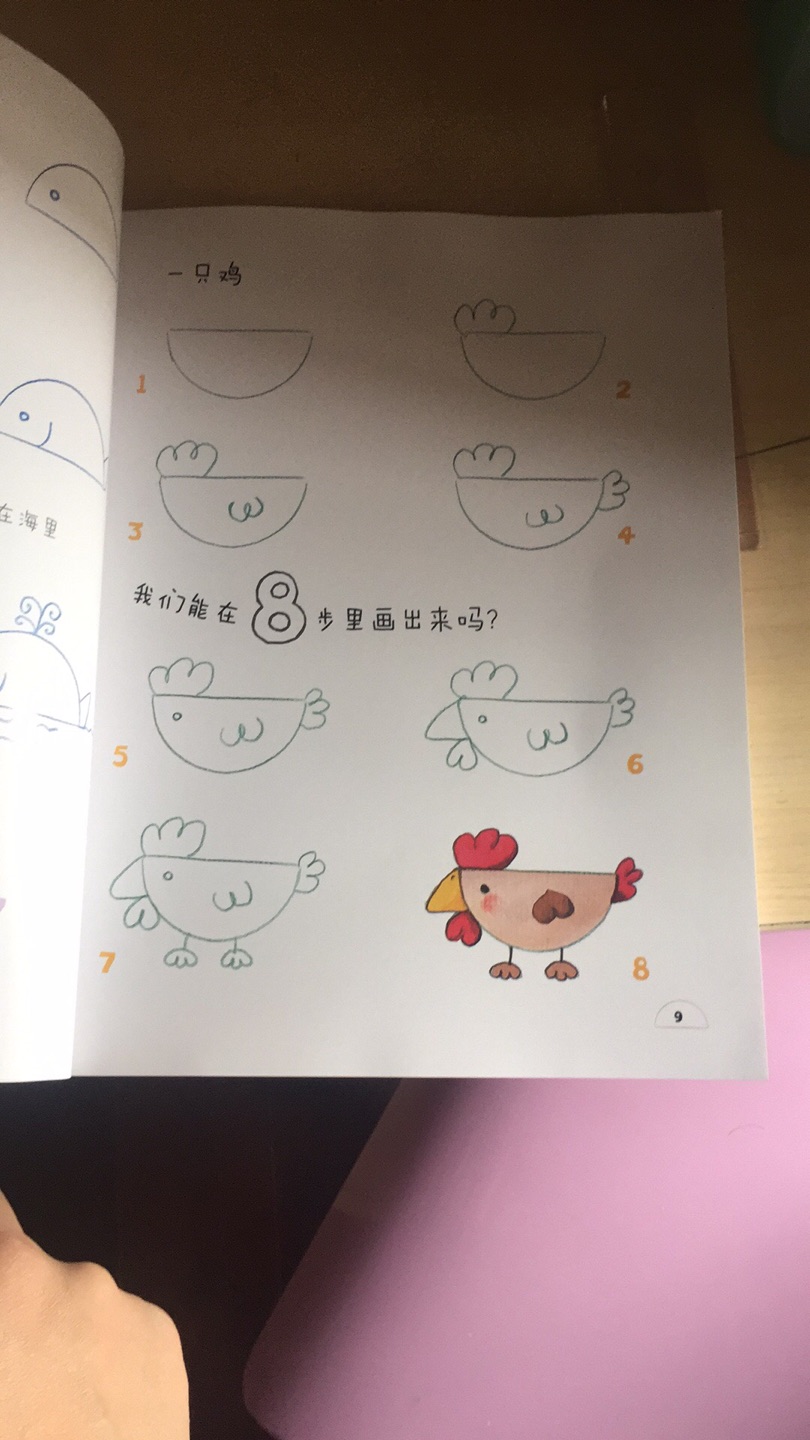 一只鸡
1
2
3
4
在海里
我们能在8步里画出来吗?
5
6
7
8
9